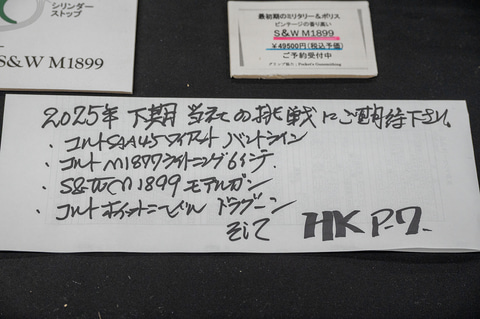 シリンダー
ストップ
S&W M1899
最初期のミリタリー&ポリス
ビンテージの香り高い
S&W M1899
¥49500円(税込予価)
ご予約受付中
2025年 下期 当社の挑戦にご期待下さい。
・コルトSAA45ワイアット バントライン
・コルトM1877ライトニング6インチ
・S&W M1899モデルガン
・コルトホイットニービル ドラグーン
そして HK P-7-